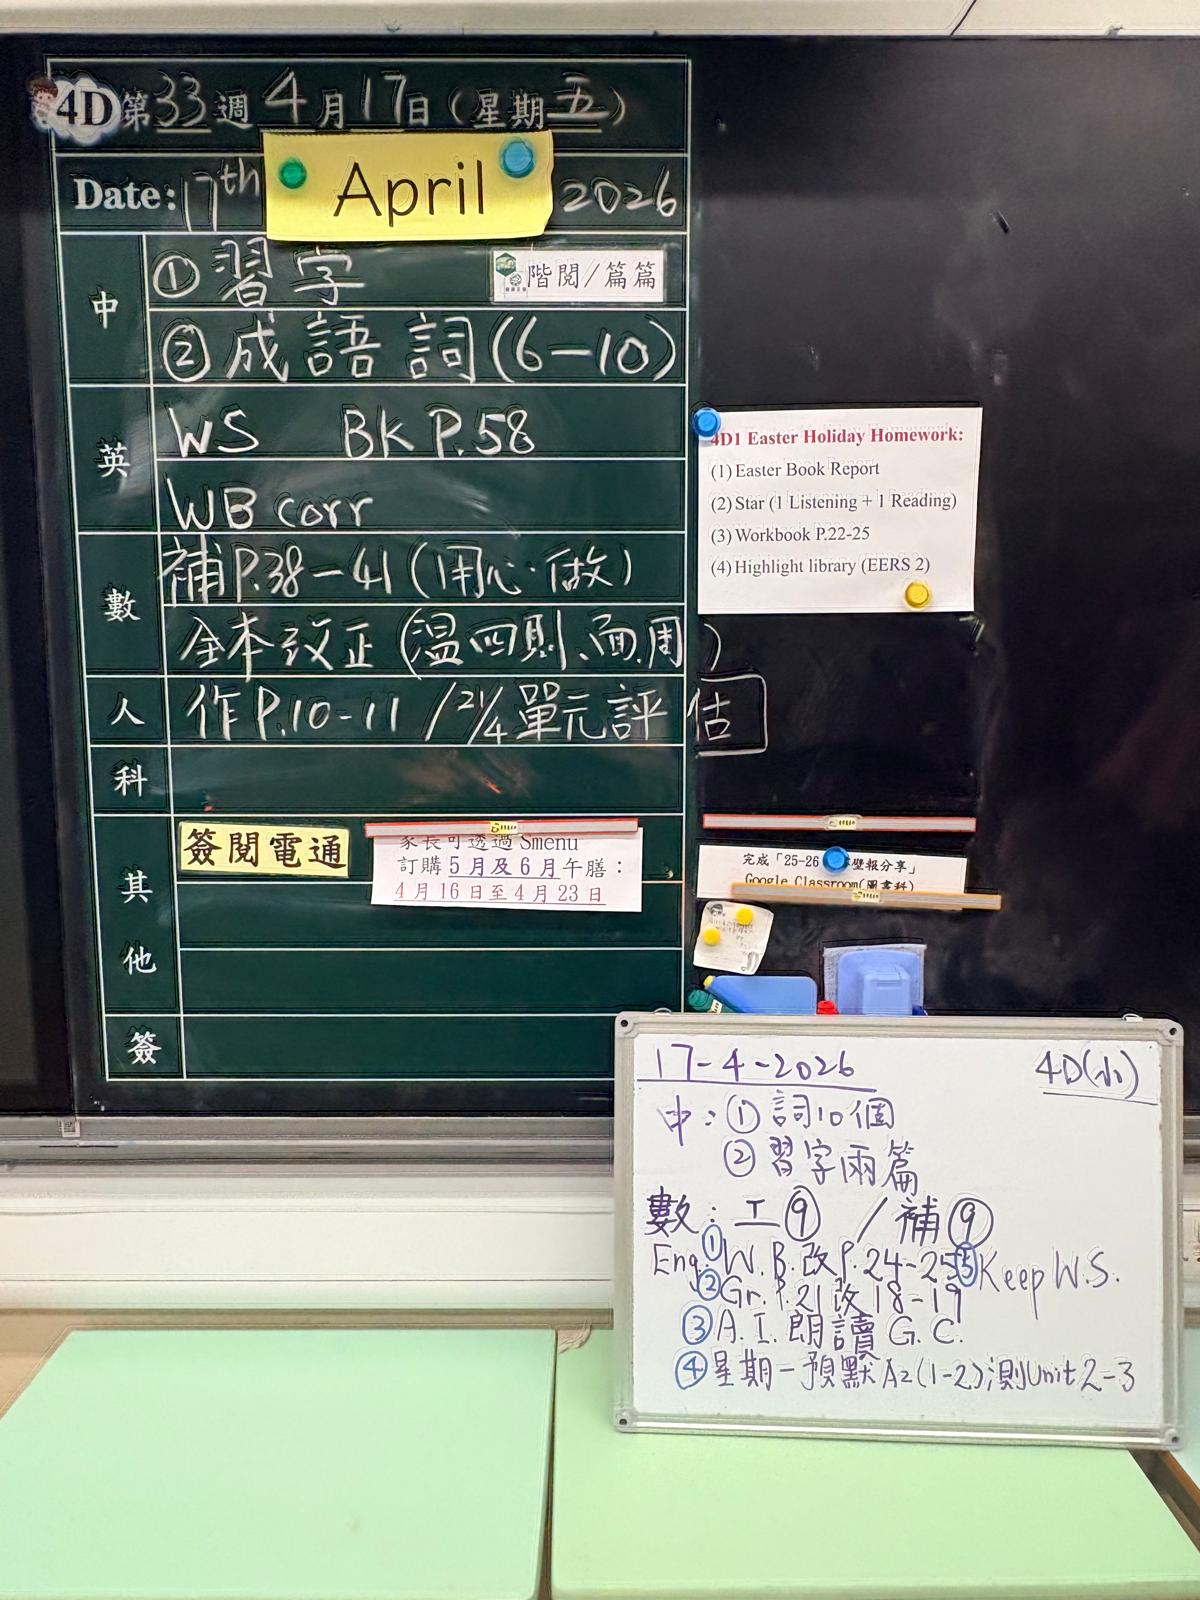 4D 第33週 4月17日(星期五)
Date: 17th April 2026
中
①習字 階閱/篇篇
②成語詞(6-10)
英
WS BK P.58
WB corr
數
補P.38-41(用心做)
全本改正(溫四則、面、周)
人
作P.10-11 / 21/4單元評估
科
其他
簽閱電通
家長可透過 Smenu
訂購5月及6月午膳:
4月16日至4月23日
簽
4D1 Easter Holiday Homework:
(1) Easter Book Report
(2) Star (1 Listening + 1 Reading)
(3) Workbook P.22-25
(4) Highlight library (EERS 2)
完成「25-26 壁報分享」
Google Classroom(圖書科)
17-4-2026 4D(小)
中:①詞10個
②習字兩篇
數:工⑨ /補⑨
Eng.①W.B.改P.24-25 ⑤Keep W.S.
②Gr.P.21改18-19
③A.I.朗讀 G.C.
④星期一預默A2(1-2)測Unit 2-3